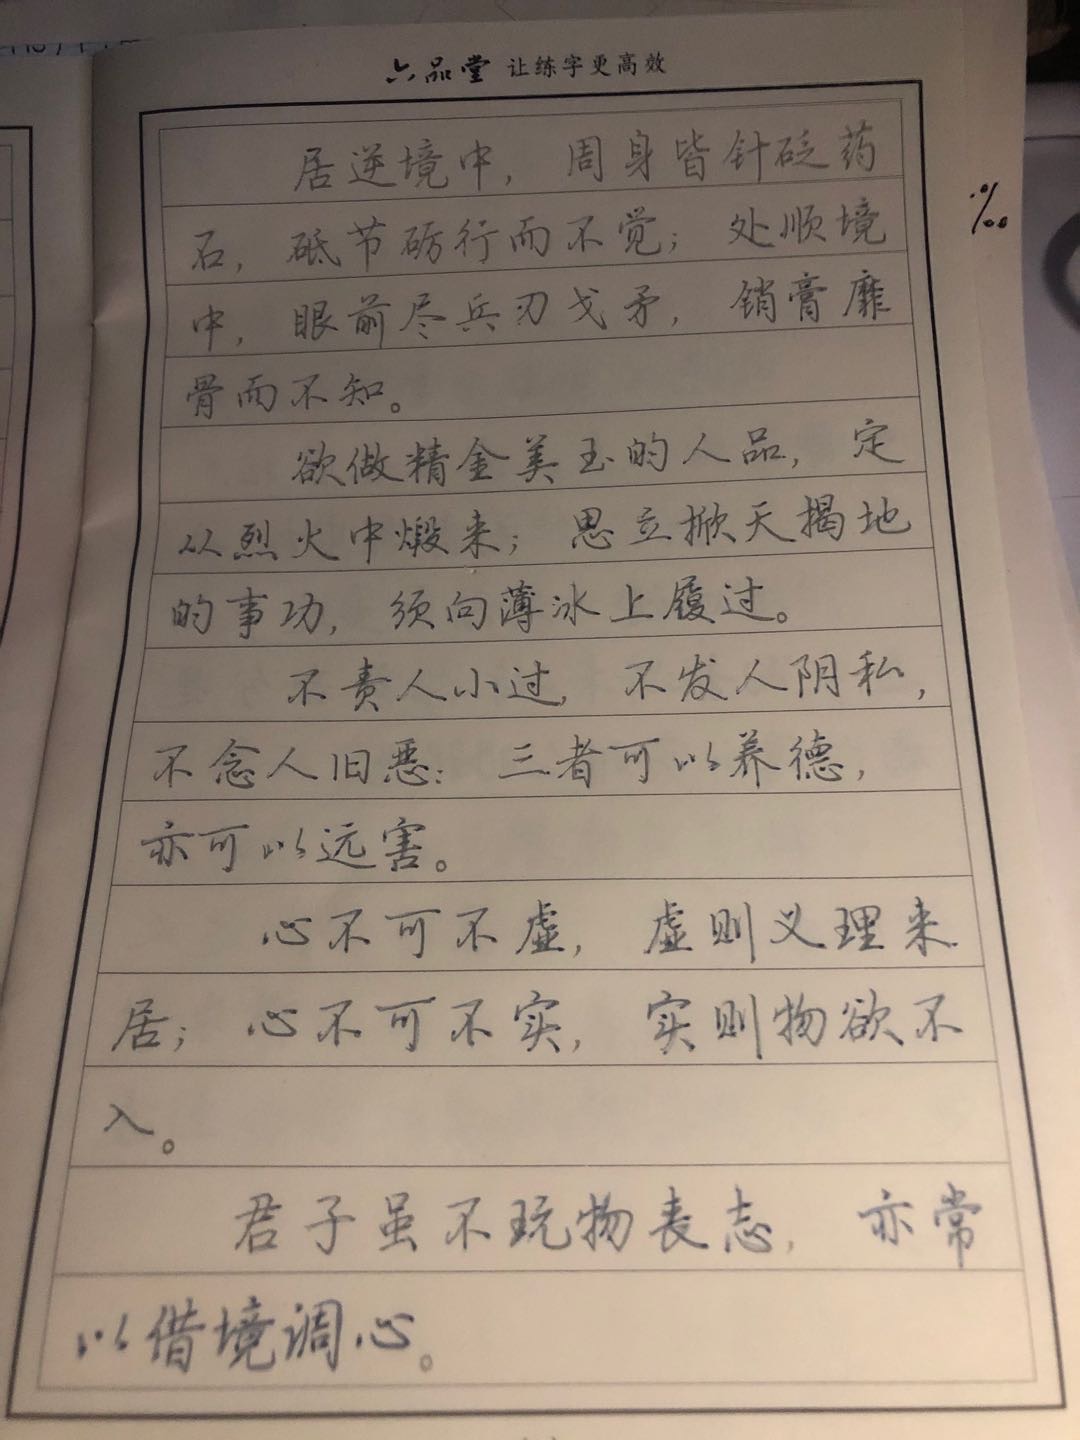 六品堂 让练字更高效
居逆境中，周身皆针砭药
石，砥节砺行而不觉；处顺境
中，眼前尽兵刃戈矛，销膏靡
骨而不知。
欲做精金美玉的人品，定
从烈火中煅来；思立掀天揭地
的事功，须向薄冰上履过。
不责人小过，不发人阴私，
不念人旧恶：三者可以养德，
亦可以远害。
心不可不虚，虚则义理来
居；心不可不实，实则物欲不
入。
君子虽不玩物丧志，亦常
以借境调心。